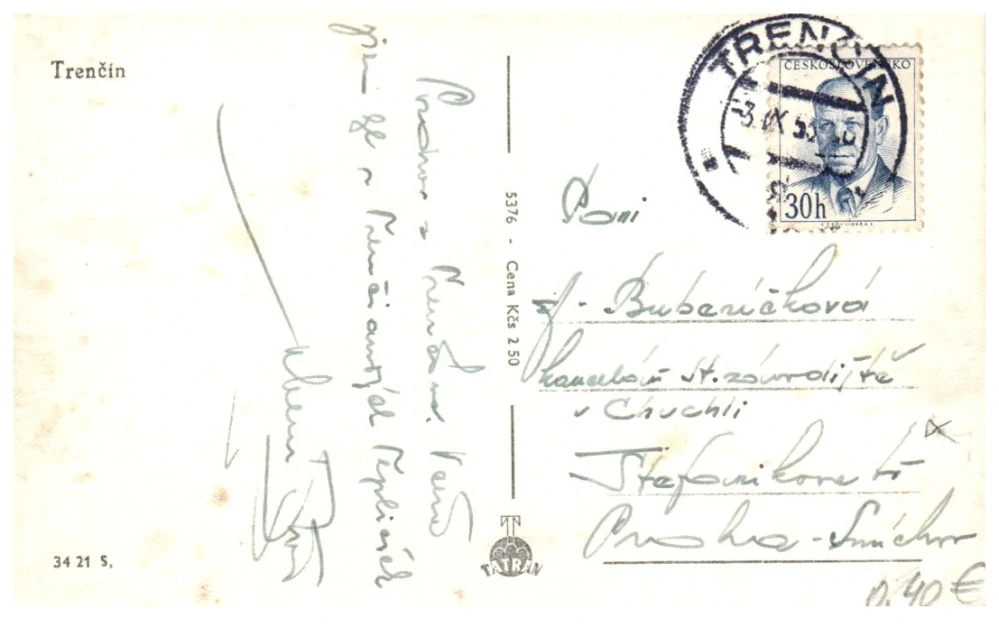 Trenčín
Pozdrav z Trenčína. Včera
jsem byl v Trenčianských Teplicích
5376 - Cena Kčs 2 50
TATRAN
34 21 S,
TRENČÍN
3. IX 53
ČESKOSLOVENSKO
30h
Paní
Buberníčková
kancelář st. závodiště
v Chuchli
Štefanikova tř
Praha - Smíchov
0,40 €